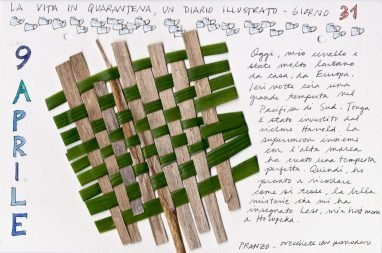 LA VITA IN QUARANTENA, UN DIARIO ILLUSTRATO - GIORNO 31
9 APRILE
Oggi, mio cervello è
stato molto lontano
da casa, da Europa.
Ieri notte c'era una
grande tempesta nel
Pacifico di Sud. Tonga
è stato investito dal
ciclone Harold. La
supermoon insieme
con l'alta marea
ha creato una tempesta
perfetta. Quindi, ho
provato a ricordare
come si tesse, la bella
che mi ha
insegnato Lose, mia host mom
a
PRANZO - orecchiette con pomodoro